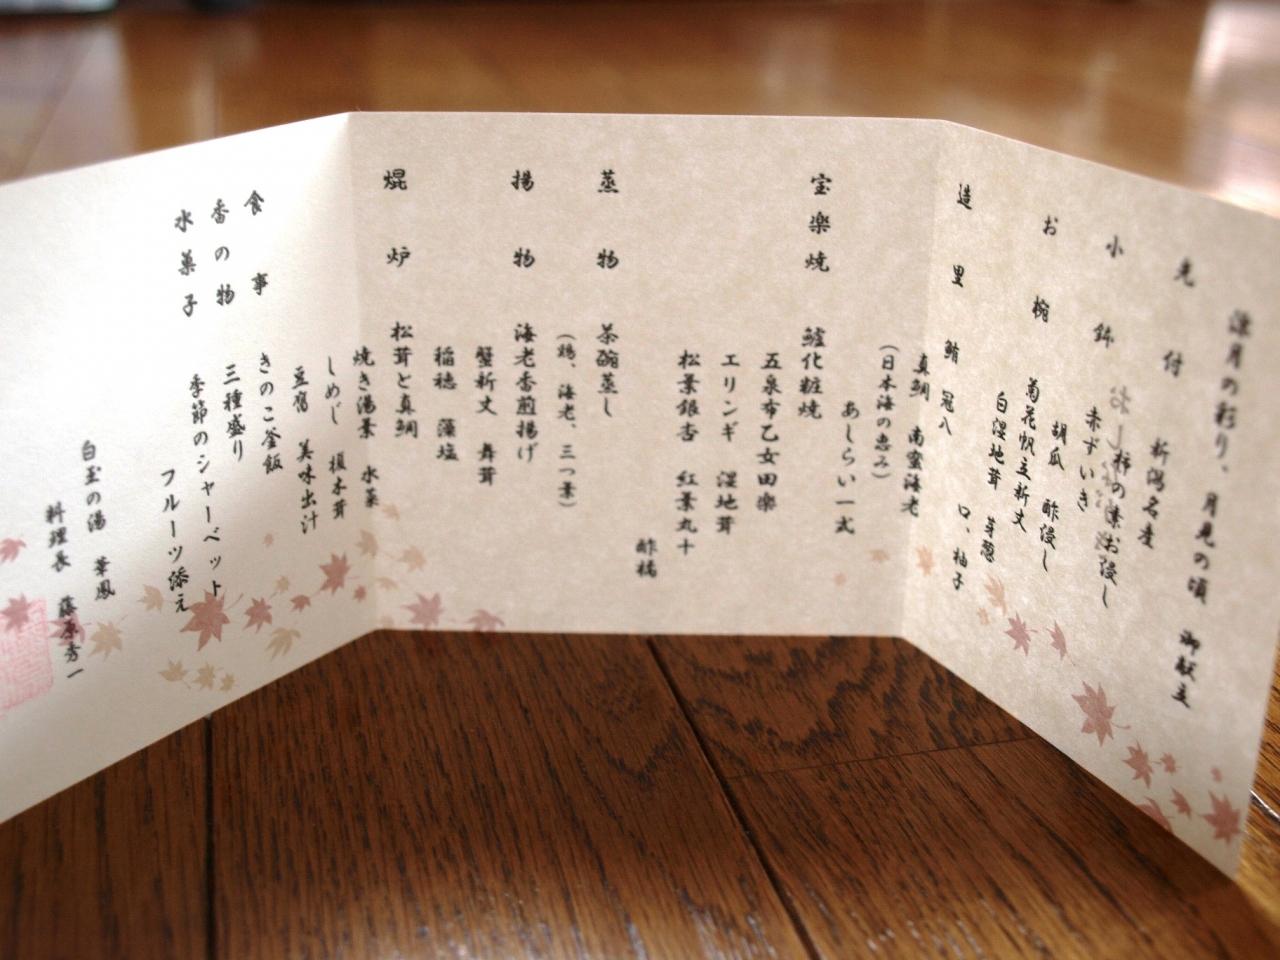 月の彩り、月見の頃 御献立
先付 新潟名産
柿の素お浸し
小鉢 赤ずいき
胡瓜 酢浸し
お椀 菊花帆立新丈
白湿地茸 芽葱
口、柚子
造里 鮪 冠八
真鯛 南蛮海老
(日本海の恵み)
あしらい一式
宝楽焼 鱸化粧焼
五泉布乙女田楽
エリンギ 湿地茸
松葉銀杏 紅葉丸十
酢橘
蒸物 茶碗蒸し
(鶏、海老、三つ葉)
揚物 海老香煎揚げ
蟹新丈 舞茸
稲穂 藻塩
焜炉 松茸と真鯛
焼き湯葉 水菜
しめじ 榎木茸
豆腐 美味出汁
食事 きのこ釜飯
香の物 三種盛り
水菓子 季節のシャーベット
フルーツ添え
白玉の湯 華鳳
料理長 藤彦秀一